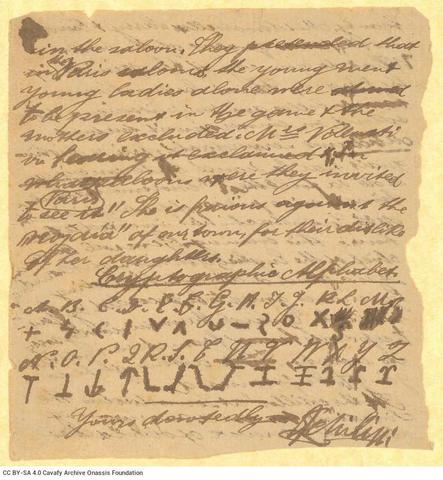 in the saloon. They pretended that
in Paris saloons the young men &
young ladies alone were
to be present in the game & the
mothers excluded: Mrs
exclaimed "In
what saloons were they invited
to see it" She is furious against the
of our town, for their dislike
of her daughters.
Paris
Cryptographic Alphabet.
A. B. C. D. E. F. G. H. I. J. K. L. M.
N. O. P. Q. R. S. T. U V W X Y Z
Yours devotedly
CC BY-SA 4.0 Cavafy Archive Onassis Foundation